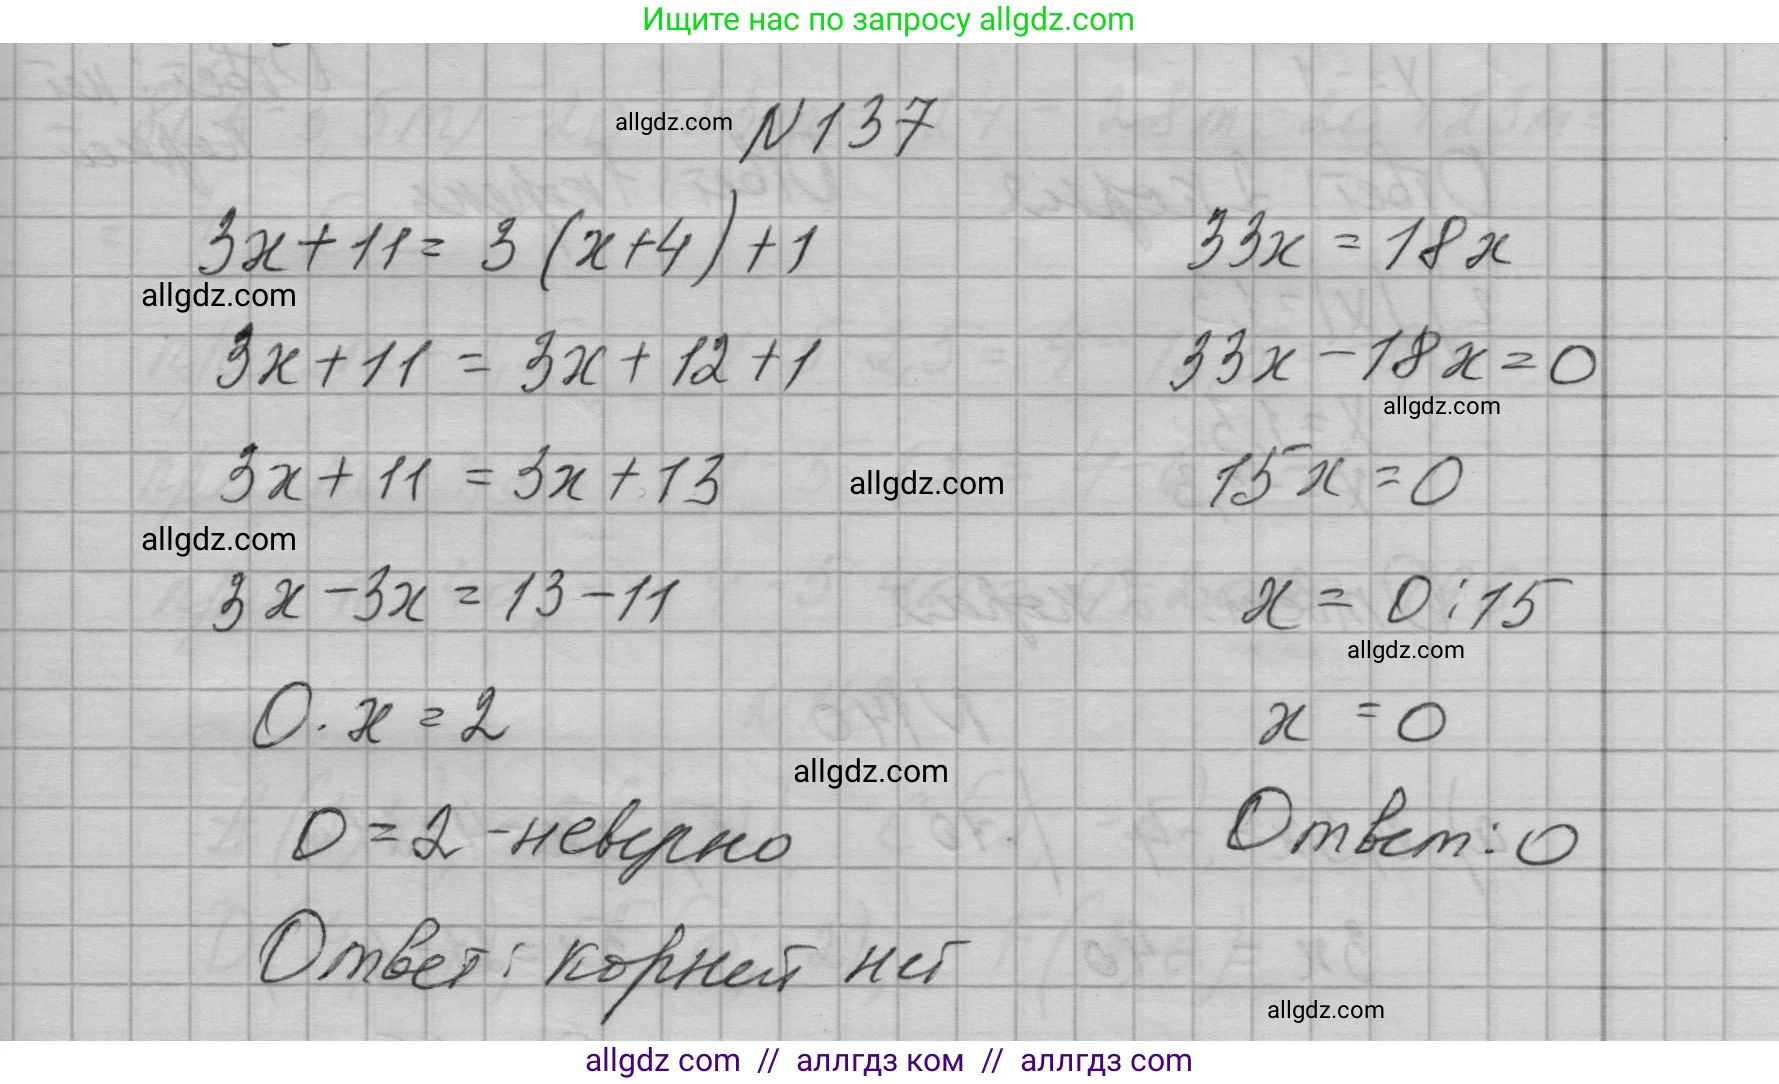 Ищите нас по запросу allgdz.com
allgdz.com
N 137
3x+11= 3(x+4)+1
allgdz.com
3x+11 = 3x+12+1
3x+11 = 3x+13
allgdz.com
allgdz.com
3x-3x=13-11
0·x=2
allgdz.com
0=2 -неверно
Ответ: корней нет
33x=18x
33x-18x=0
allgdz.com
15x=0
x=0:15
allgdz.com
x=0
Ответ: 0
allgdz.com
allgdz com // аллгдз ком // аллгдз com